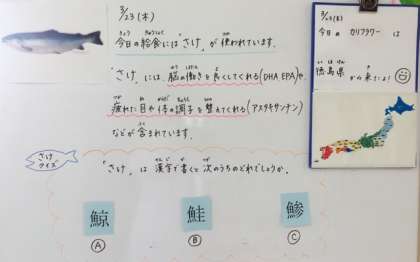 3/23(木)
今日の給食には"さけ"が使われています。
"さけ"には、脳の働きを良くしてくれる(DHA EPA)や、
疲れた目や体の調子を整えてくれる(アスタキサンチン)
などが含まれています。
さけ
クイズ
"さけ"は漢字で書くと次のうちのどれでしょうか。
鯨
鮭
鯵
Ⓐ
Ⓑ
Ⓒ
3/23(木)
今日のカリフラワーは
徳島県から来たよ!